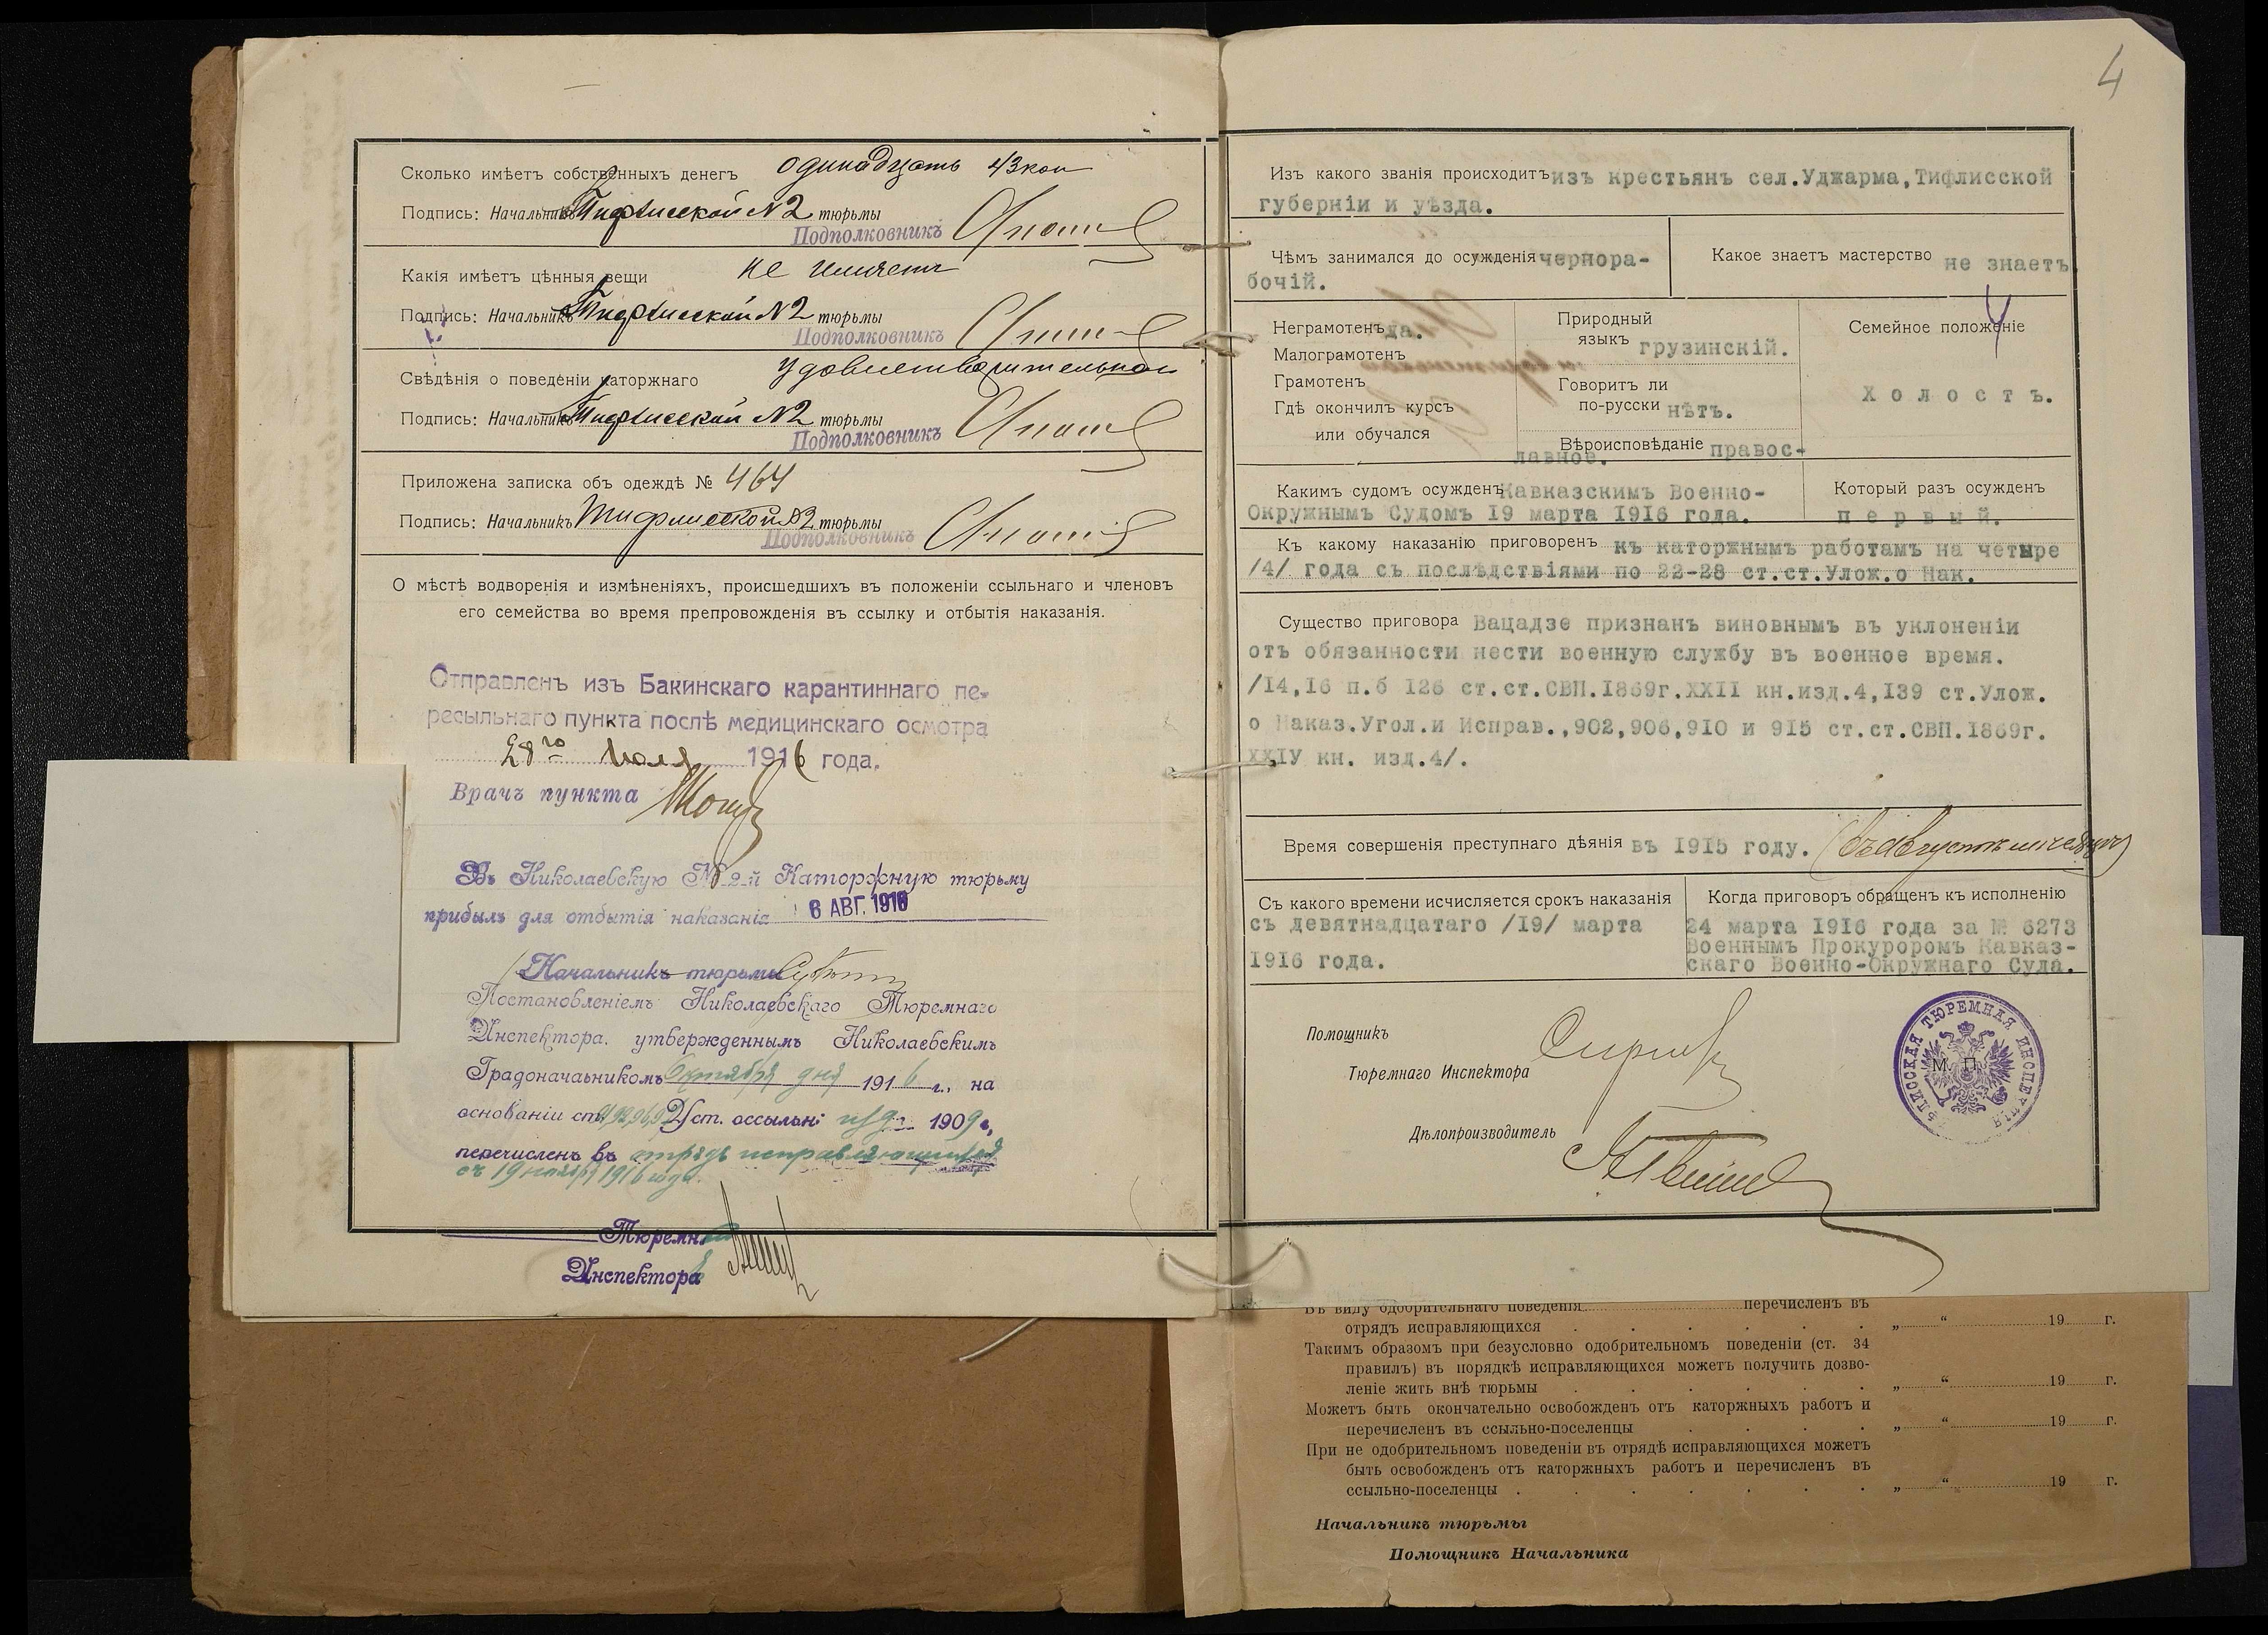 4
Сколько имѣетъ собственныхъ денегъ одинадцать 43 коп
Подпись: Начальникъ Тифлисской №2 тюрьмы
Подполковникъ
Какія имѣетъ цѣнныя вещи не имѣетъ
Подпись: Начальникъ Тифлисской №2 тюрьмы
Подполковникъ
Свѣдѣнія о поведеніи каторжнаго удовлетворительное
Подпись: Начальникъ Тифлисской №2 тюрьмы
Подполковникъ
Приложена записка объ одеждѣ № 464
Подпись: Начальникъ Тифлисской №2 тюрьмы
Подполковникъ
О мѣстѣ водворенія и измѣненіяхъ, происшедшихъ въ положеніи ссыльнаго и членовъ
его семейства во время препровожденія въ ссылку и отбытія наказанія.
Отправленъ изъ Бакинскаго карантиннаго пе-
ресыльнаго пункта послѣ медицинскаго осмотра
28го Июля 1916 года.
Врачъ пункта
Въ Николаевскую № 2-й Каторжную тюрьму
прибылъ для отбытія наказанія 6 АВГ. 1916
Начальникъ тюрьмы
Постановленіемъ Николаевскаго Тюремнаго
Инспектора. утвержденнымъ Николаевскимъ
Градоначаьникомъ Октября дня 1916 г., на
основаніи ст. Уст. ссыльн: изд. 1909 г,
перечисленъ въ отрядъ исправляющихся
съ 19 ноября 1916 года.
Тюремн
Инспектора
Изъ какого званія происходитъ изъ крестьянъ сел.Уджарма,Тифлисской
губерніи и уѣзда.
Чѣмъ занимался до осужденія чернора-
бочій.
Какое знаетъ мастерство не знаетъ
Неграмотенъ да.
Малограмотенъ
Грамотенъ
Гдѣ окончилъ курсъ
или обучался
Природный
языкъ грузинскій.
Говоритъ ли
по-русски нѣтъ.
Вѣроисповѣданіе правос-
лавное.
Семейное положеніе
Холостъ.
Какимъ судомъ осужденъ Кавказскимъ Военно-
Окружнымъ Судомъ 19 марта 1916 года.
Который разъ осужденъ
первый.
Къ какому наказанію приговоренъ къ каторжнымъ работамъ на четыре
/4/ года съ послѣдствіями по 22-28 ст.ст.Улож.о Нак.
Существо приговора Вацадзе признанъ виновнымъ въ уклоненіи
отъ обязанности нести военную службу въ военное время.
/14,16 п.б 126 ст.ст.СВП.1869г.XXII кн.изд.4,139 ст.Улож.
о Наказ.Угол.и Исправ.,902,906,910 и 915 ст.ст.СВП.1869г.
XXIV кн. изд.4/.
Время совершенія преступнаго дѣянія въ 1915 году. (въ Августѣ мѣсяцѣ)
Съ какого времени исчисляется срокъ наказанія
съ девятнадцатаго /19/ марта
1916 года.
Когда приговоръ обращенъ къ исполненію
24 марта 1916 года за № 6273
Военнымъ Прокуроромъ Кавказ-
скаго Военно-Окружнаго Суда.
Помощникъ
Тюремнаго Инспектора
Дѣлопроизводитель
ТЮРЕМНАЯ ИНСПЕКЦІЯ
М. П.
Въ виду одобрительнаго поведенія перечисленъ въ
отрядъ исправляющихся . . . . . . „ “ 19 г.
Такимъ образомъ при безусловно одобрительномъ поведеніи (ст. 34
правилъ) въ порядкѣ исправляющихся можетъ получить дозво-
леніе жить внѣ тюрьмы . . . . . . „ “ 19 г.
Можетъ быть окончательно освобожденъ отъ каторжныхъ работъ и
перечисленъ въ ссыльно-поселенцы . . . . „ “ 19 г.
При не одобрительномъ поведеніи въ отрядѣ исправляющихся можетъ
быть освобожденъ отъ каторжныхъ работъ и перечисленъ въ
ссыльно-поселенцы . . . . . . . „ “ 19 г.
Начальникъ тюрьмы
Помощникъ Начальника